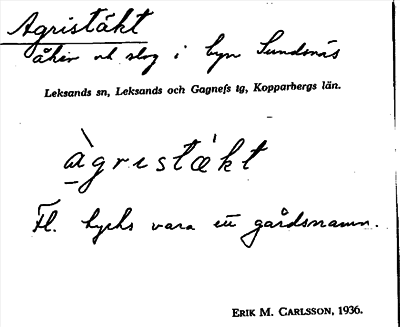 Agristäkt
åker och slog i byn Sundsnäs
Leksands sn, Leksands och Gagnefs tg, Kopparbergs län.
àgrıstækt
Fl. tycks vara ett gårdsnamn.
ERIK M. CARLSSON, 1936.